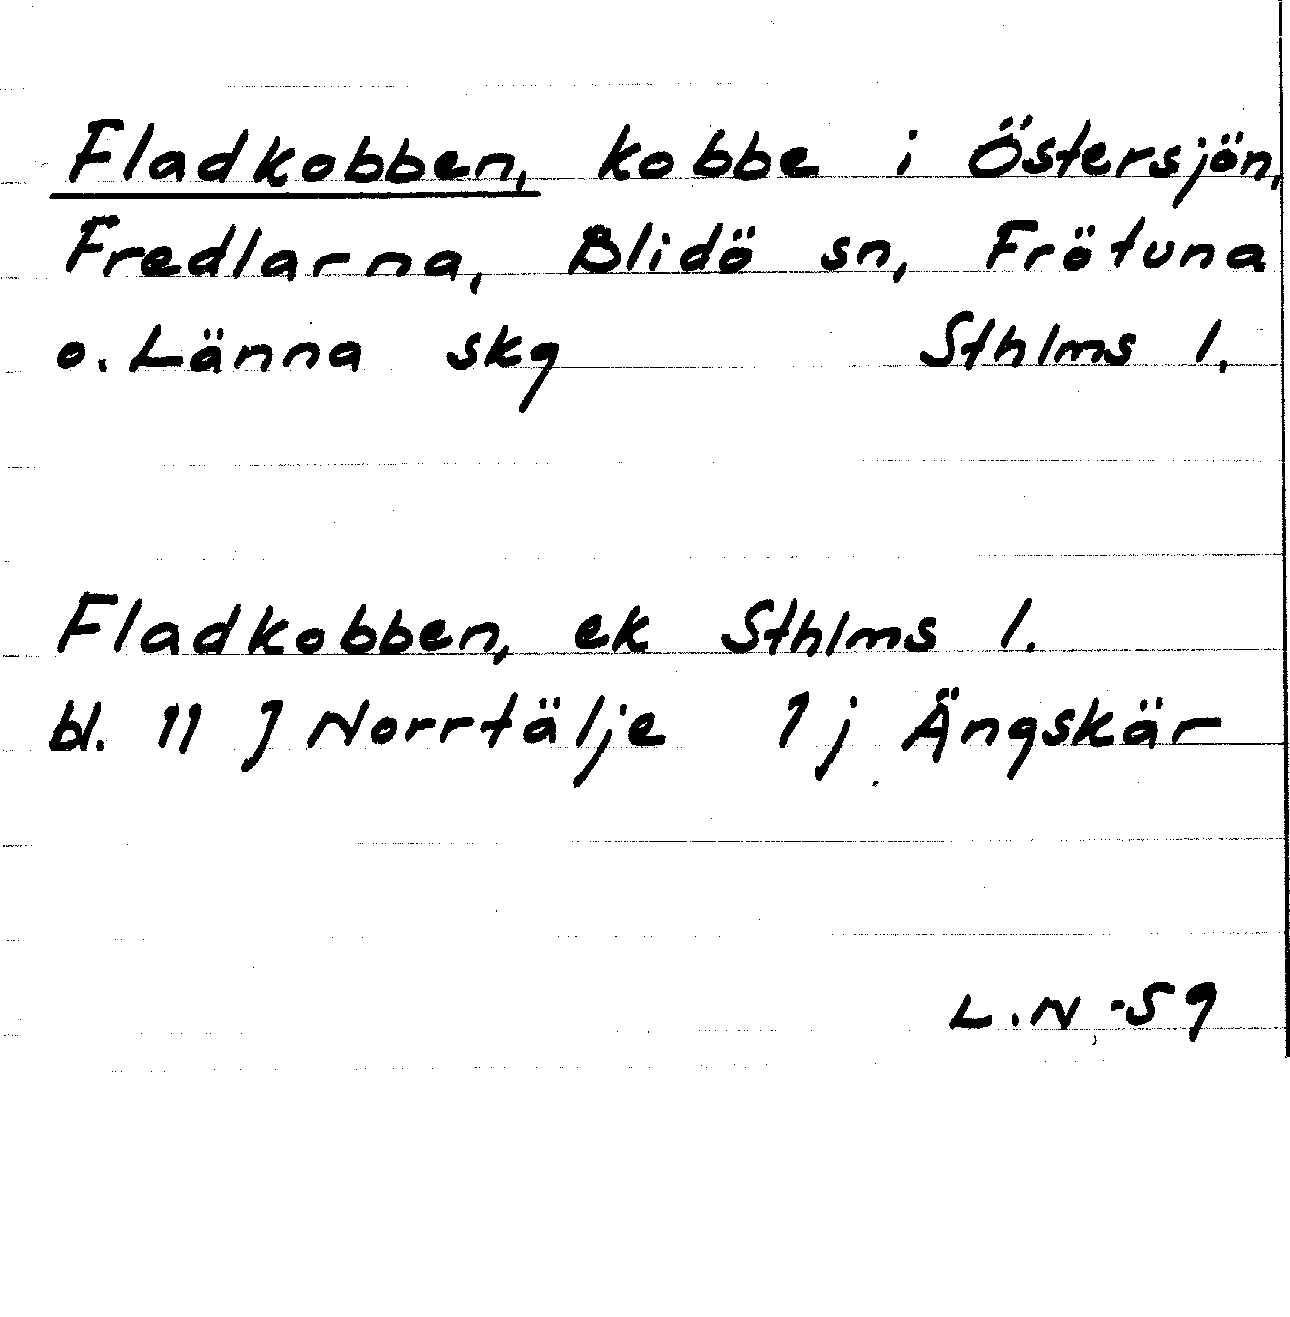 Fladkobben, kobbe i Östersjön,
Fredlarna, Blidö sn, Frötuna
o. Länna skg Sthlms l.
Fladkobben, ek Sthlms l.
bl. 11 J Norrtälje 1 j Ängskär
L.N -59